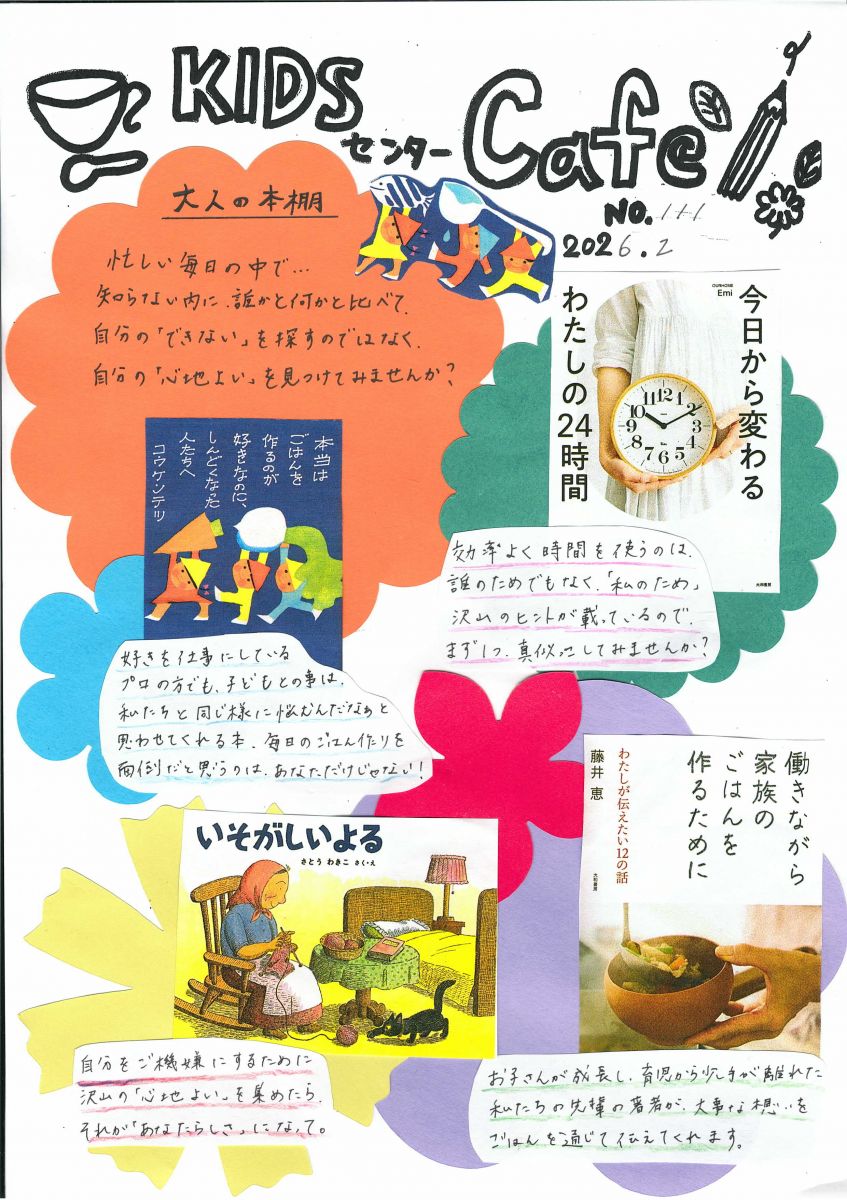 KIDS
センター Cafe
NO. 111
2026.2
大人の本棚
忙しい毎日の中で…
知らない内に、誰かと何かと比べて、
自分の「できない」を探すのではなく、
自分の「心地よい」を見つけてみませんか?
本当は
ごはんを
作るのが
好きなのに、
しんどくなった
人たちへ
コウケンテツ
OURHOME
Emi
今日から変わる
わたしの24時間
大和書房
効率よく時間を使うのは、
誰のためでもなく、「私のため」
沢山のヒントが載っているので、
まず1つ、真似っこしてみませんか?
好きを仕事にしている
プロの方でも、子どもとの事は、
私たちと同じ様に悩むんだなぁと
思わせてくれる本。毎日のごはん作りを
面倒だと思うのは、あなただけじゃない!
働きながら
家族の
ごはんを
作るために
わたしが伝えたい12の話
藤井 恵
大和書房
いそがしいよる
さとう わきこ さく・え
自分をご機嫌にするために
沢山の「心地よい」を集めたら、
それが「あなたらしさ」になって。
お子さんが成長し、育児から少し手が離れた
私たちの先輩の著者が、大事な想いを
ごはんを通じて伝えてくれます。